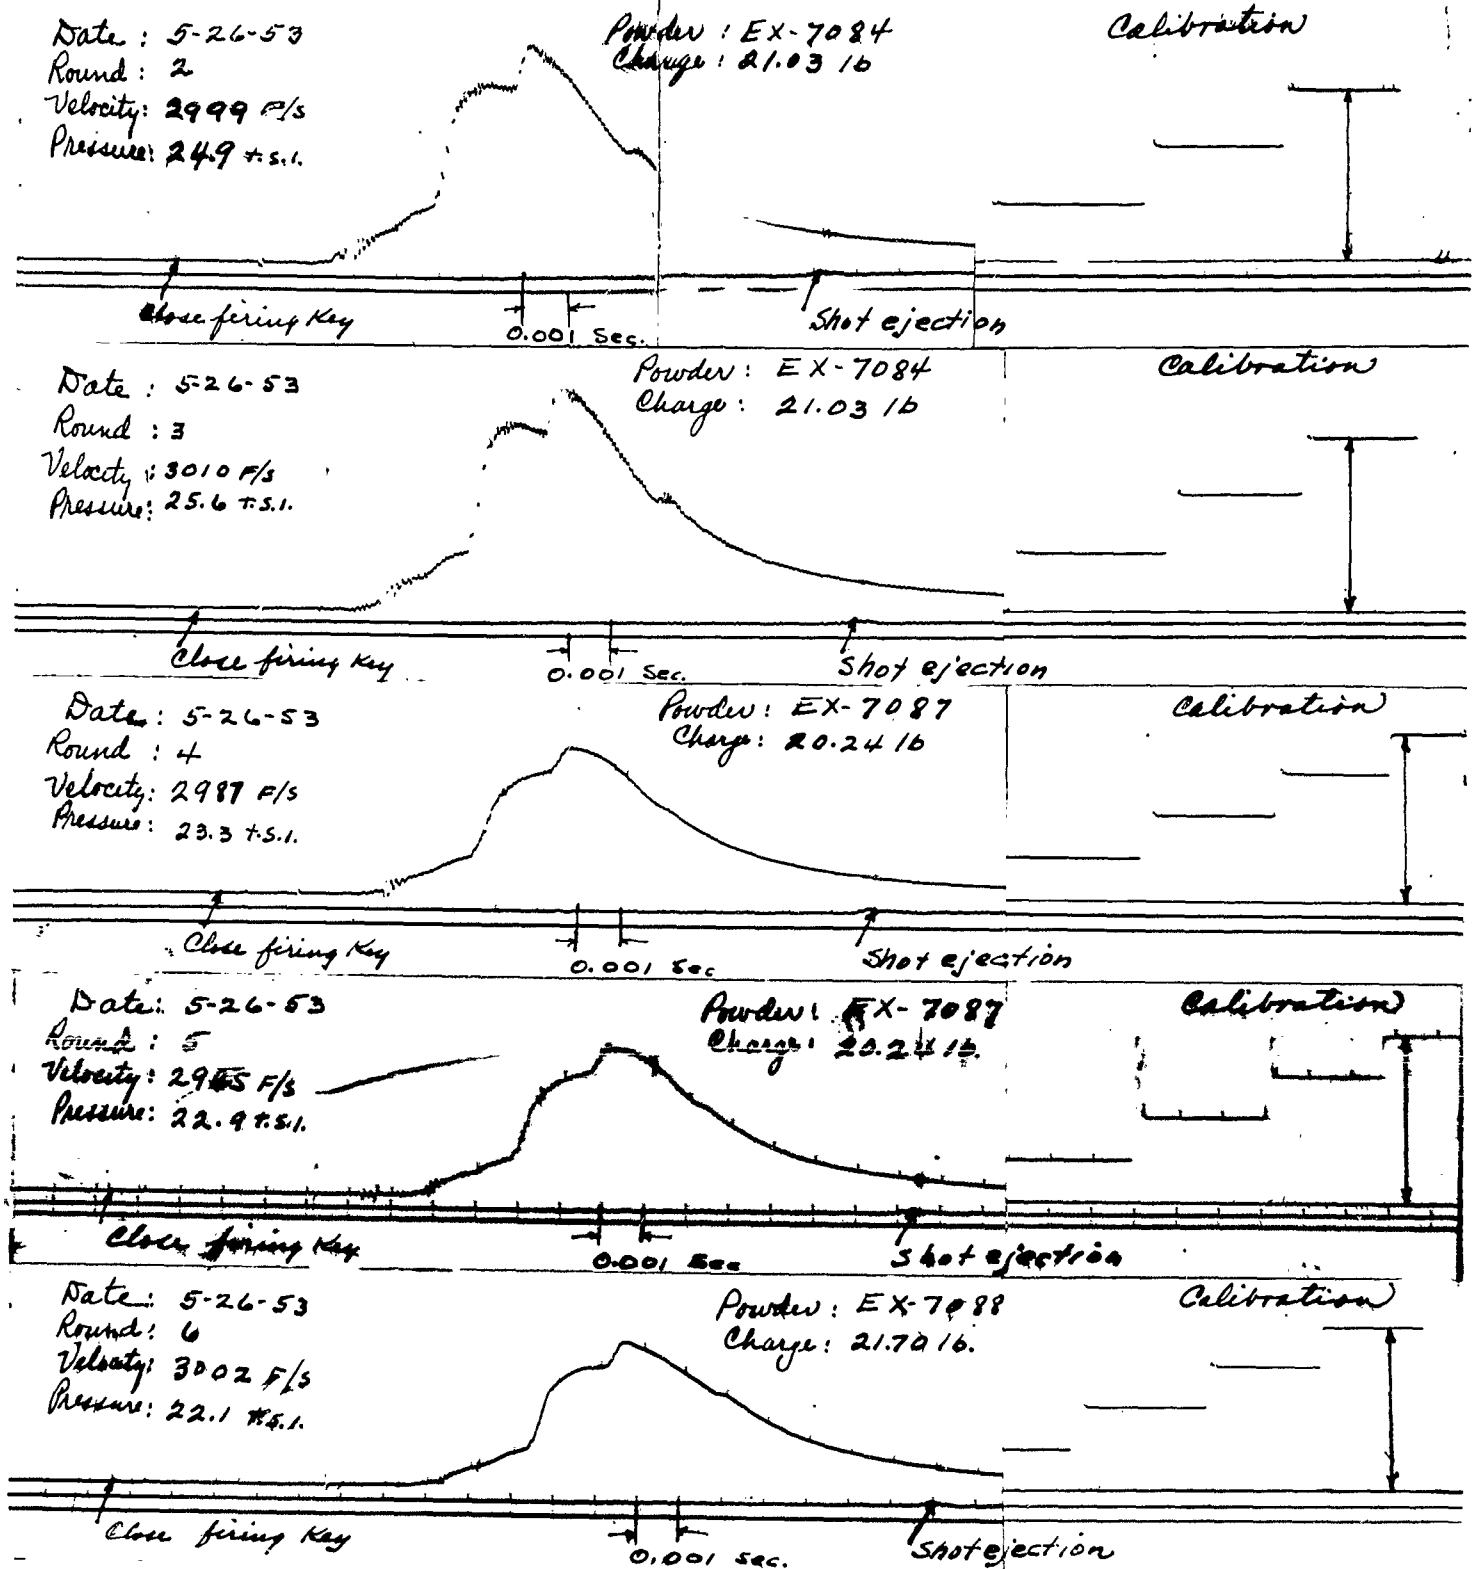 Date : 5-26-53
Round : 2
Velocity: 2999 F/s
Pressure: 24.9 t.s.i.
Powder : EX-7084
Charge : 21.03 lb
Calibration
Close firing Key
0.001 Sec.
Shot ejection
Date : 5-26-53
Round : 3
Velocity : 3010 F/s
Pressure: 25.6 T.S.I.
Powder : EX-7084
Charge : 21.03 lb
Calibration
Close firing Key
0.001 Sec.
Shot ejection
Date : 5-26-53
Round : 4
Velocity: 2987 F/s
Pressure: 23.3 t.s.i.
Powder : EX-7087
Charge: 20.24 lb
Calibration
Close firing Key
0.001 Sec
Shot ejection
Date: 5-26-53
Round : 5
Velocity: F/s
Pressure: 22.9 t.s.i.
Powder: EX-7087
Charge: 20.24 lb.
Calibration
Close firing Key
0.001 Sec
Shot ejection
Date: 5-26-53
Round: 6
Velocity: 3002 F/s
Pressure: 22.1 t.s.i.
Powder : EX-7088
Charge: 21.70 lb.
Calibration
Close firing Key
0.001 Sec.
Shot ejection